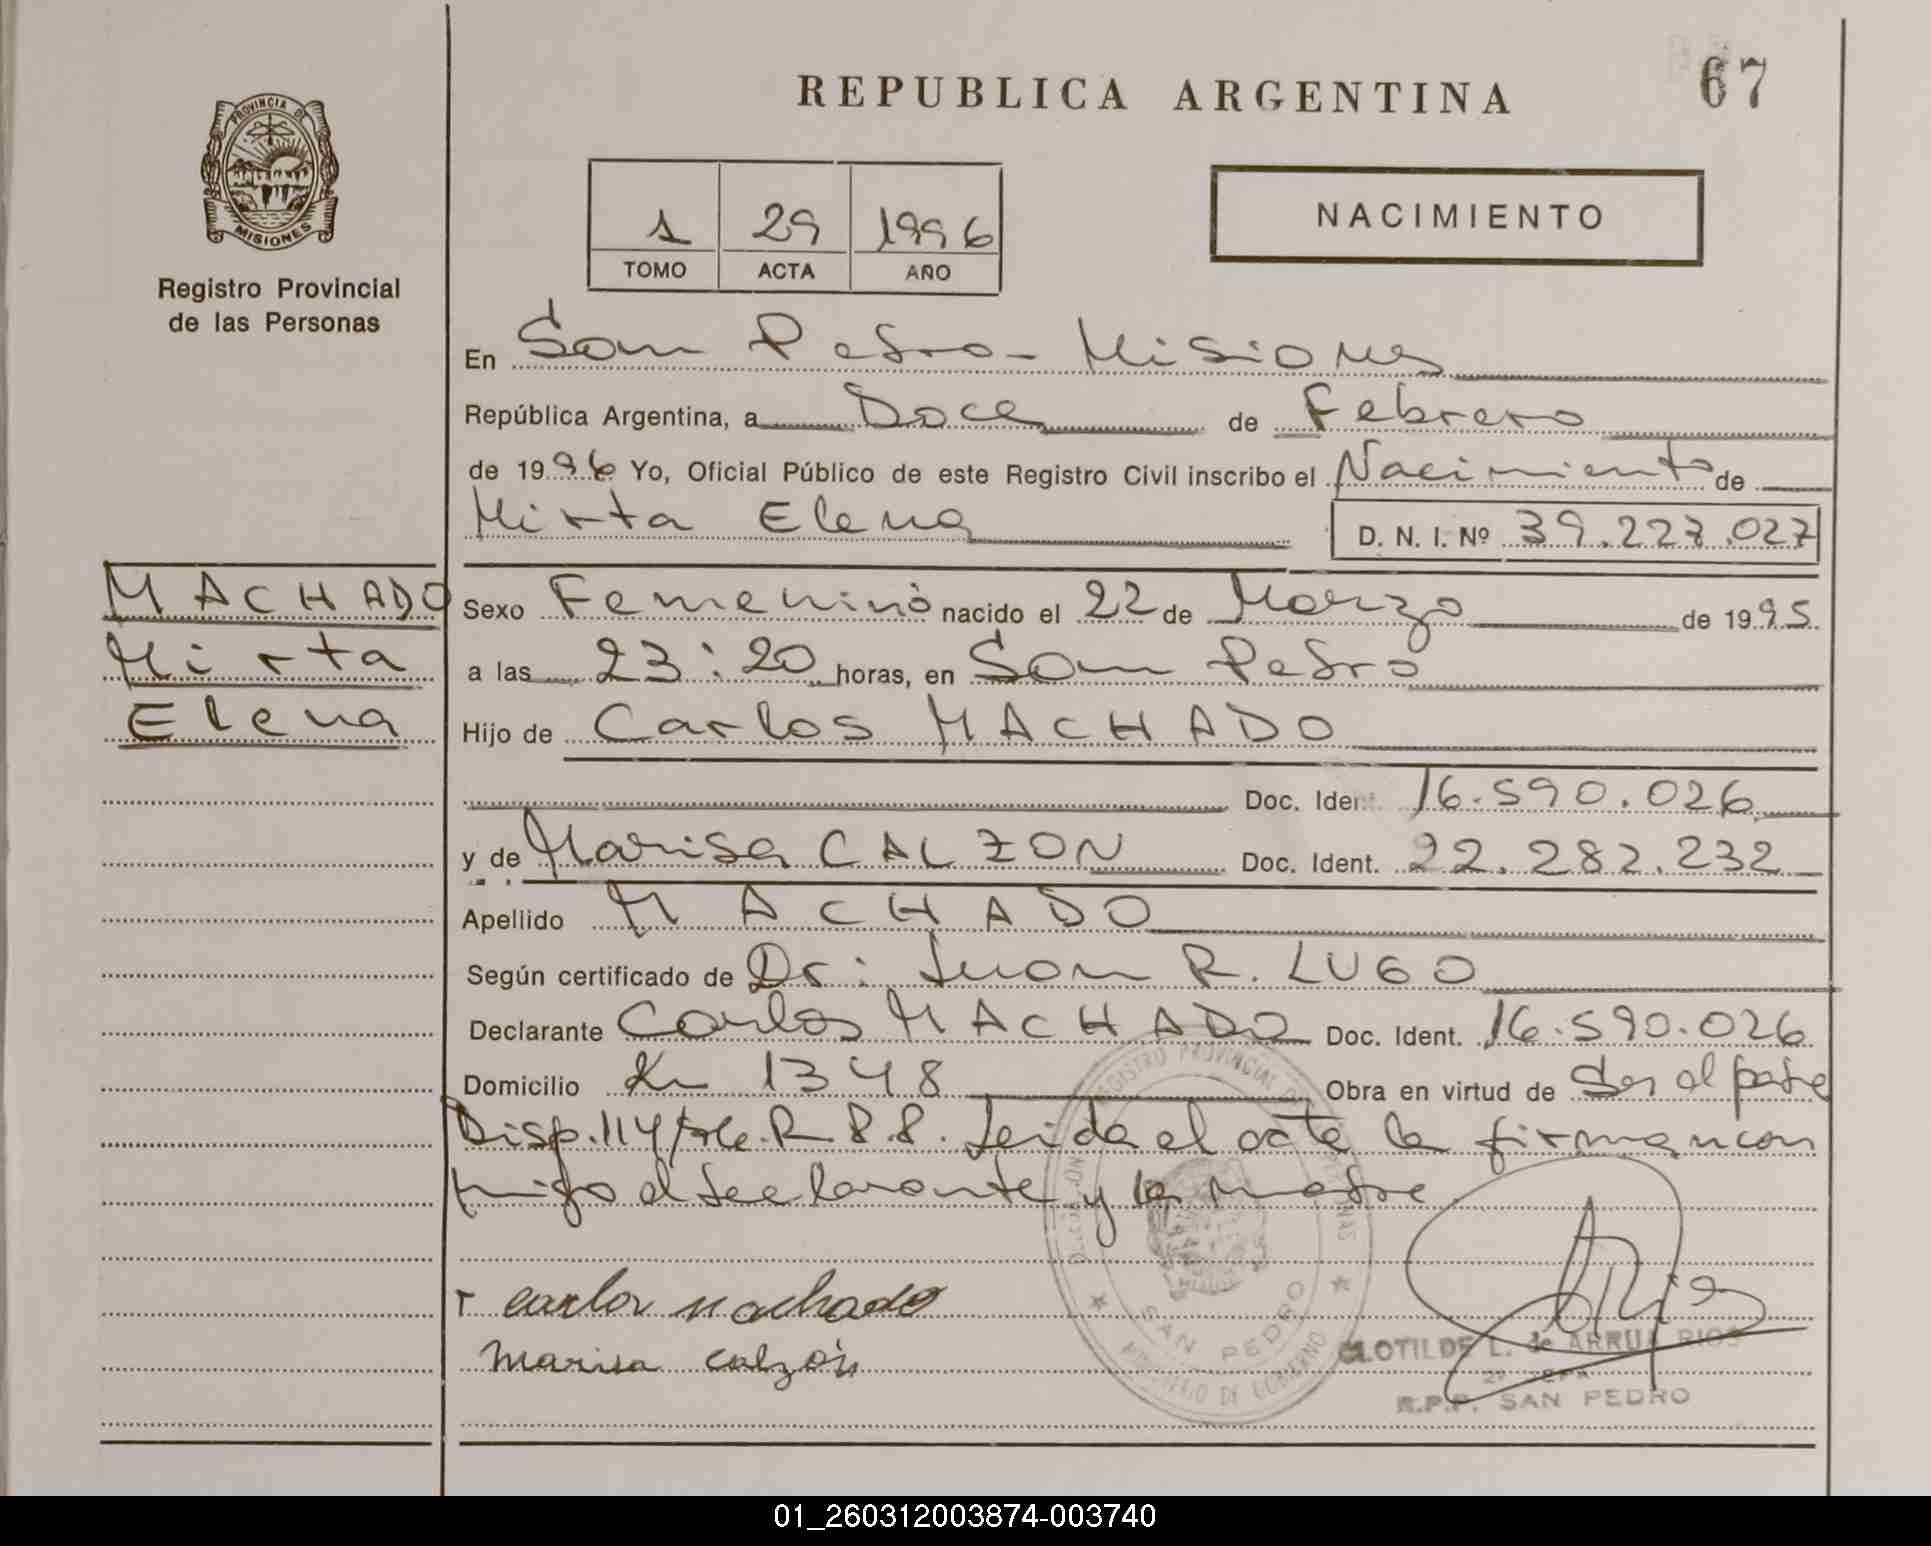 REPUBLICA ARGENTINA
67
PROVINCIA DE
MISIONES
Registro Provincial
de las Personas
1 29 1996
TOMO ACTA AÑO
NACIMIENTO
En San Pedro - Misiones
República Argentina, a Doce de Febrero
de 1996 Yo, Oficial Público de este Registro Civil inscribo el Nacimiento de
Mirta Elena D. N. I. Nº 39.227.027
MACHADO
Mirta
Elena
Sexo Femenino nacido el 22 de Marzo de 1995
a las 23:20 horas, en San Pedro
Hijo de Carlos MACHADO
Doc. Ident. 16.590.026
y de Marisa CALZON Doc. Ident. 22.282.232
Apellido MACHADO
Según certificado de Dr: Juan R. LUGO
Declarante Carlos MACHADO Doc. Ident. 16.590.026
Domicilio Km 1348 Obra en virtud de Ser el padre
Disp. 114 R. 8.8. Leida el acta la firman con
migo el declarante y la madre.
carlos machado
marisa calzón
REGISTRO PROVINCIAL DE
SAN PEDRO
MINISTERIO DE GOBIERNO
CLOTILDE L. de ARRUA RIOS
R.P.P. SAN PEDRO
01_260312003874-003740